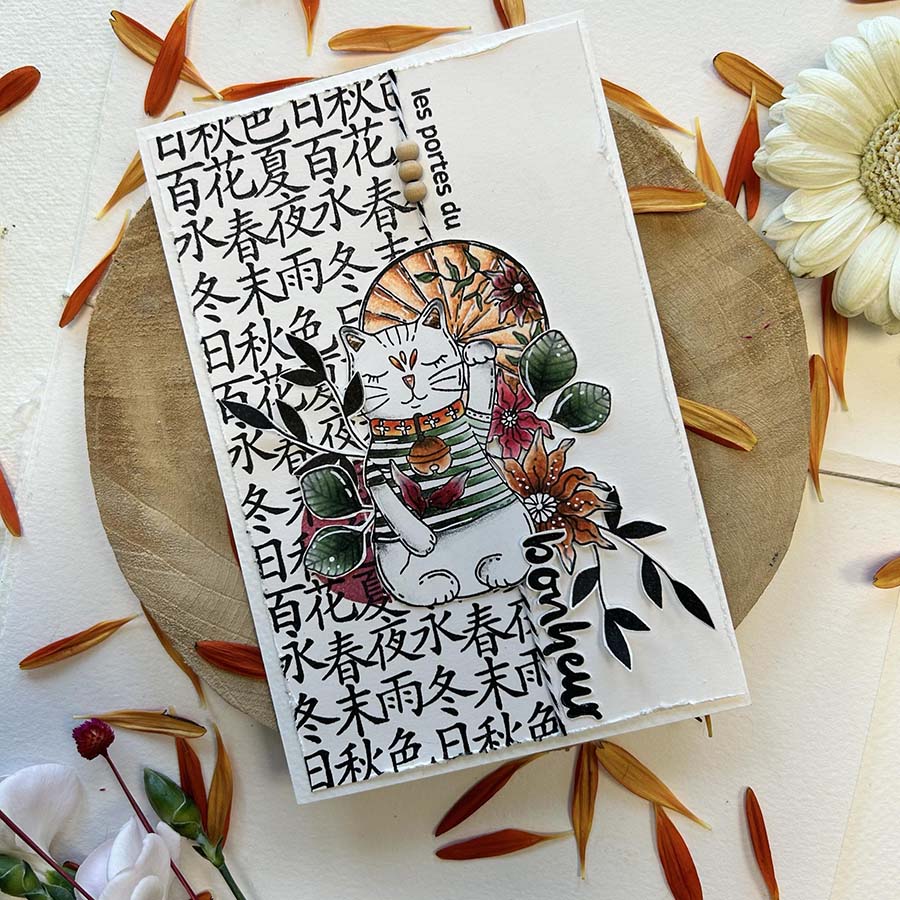 日秋色日秋色
百花夏百花
永春夜永春
冬末雨冬末
日秋色
百花夏
永春夜
冬
日秋
百花夏
永春夜永春夜
冬末雨冬末雨
日秋色日秋色
les portes du
bonheur